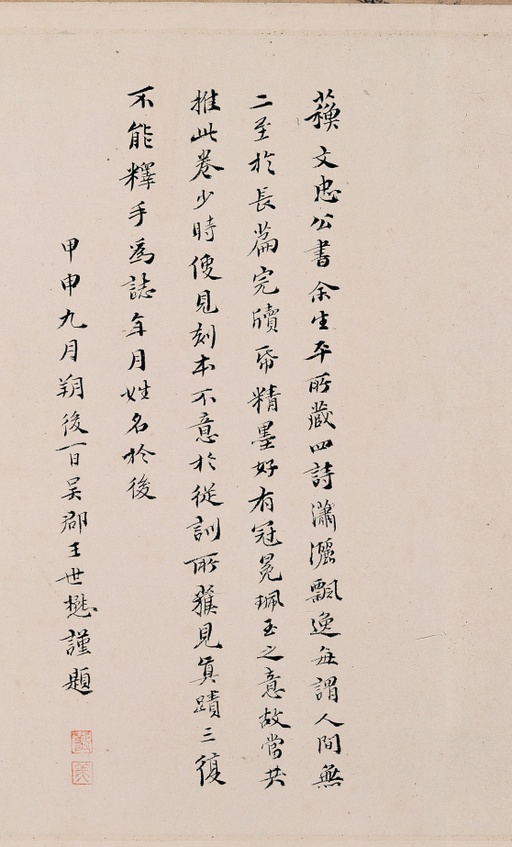 蘓文忠公書余生平所藏四詩瀟灑飄逸每謂人間無
二至於長篇完牘帋精墨好有冠冕珮玉之意故當共
推此卷少時便見刻本不意於從訓所獲見真蹟三復
不能釋手為誌年月姓名於後
甲申九月朔後一日吳郡王世懋謹題
敬美